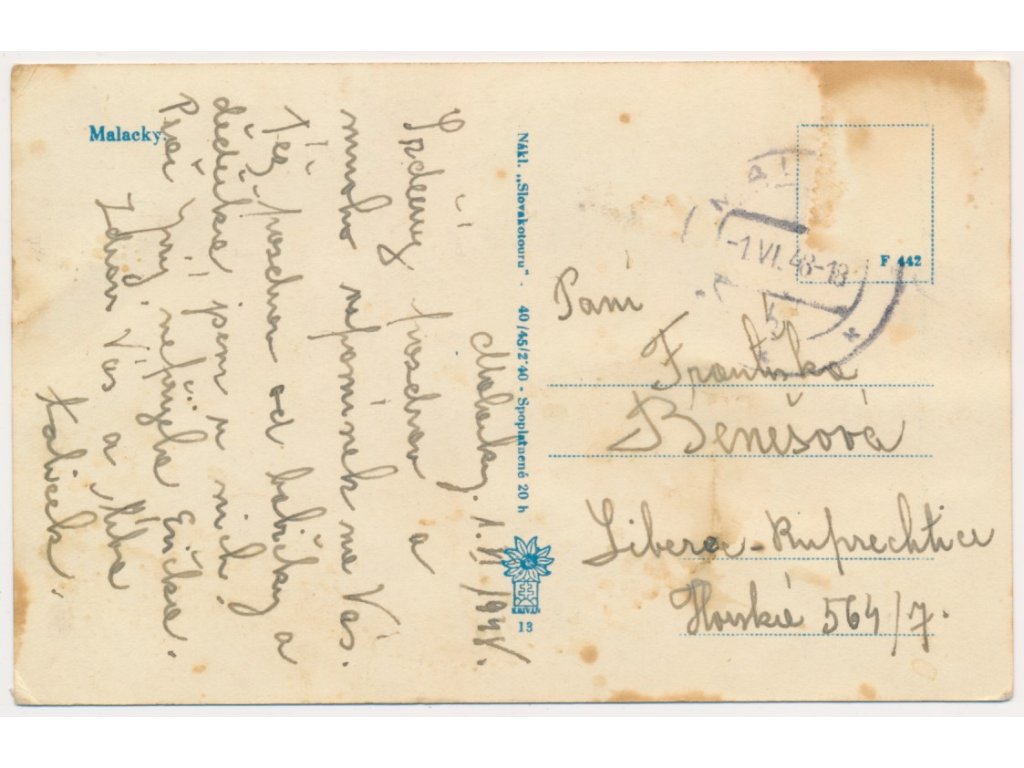 Malacky.
Malacky. 1.VI/1948.
Srdečný pozdrav a
mnoho vzpomínek na Vás.
Též pozdrav od babičky a
dědečka jsem u
nepřijela Evička.
Zdraví Vás a líbá
tatíček.
Nákl. „Slovakotouru" - 40/45/2˙40 - Spoplatnené 20 h
KRIVÁŇ
13
F 442
-1.VI.48-18
Paní
Františka
Benešová
Liberec-Ruprechtice
Horská 564/7.